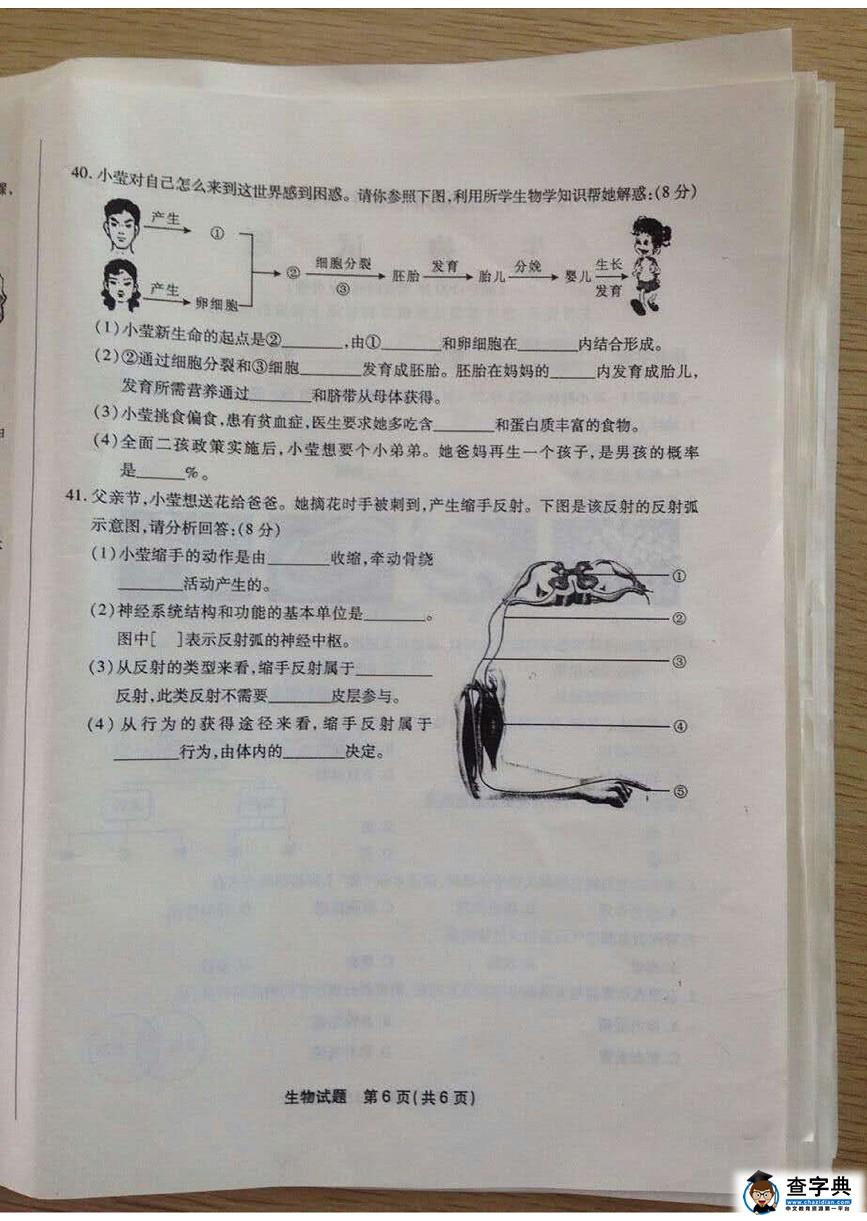 40. 小莹对自己怎么来到这世界感到困惑。请你参照下图,利用所学生物学知识帮她解惑:(8分)
产生 ①
② 细胞分裂 ③ 胚胎 发育 胎儿 分娩 婴儿 生长 发育
产生 卵细胞
(1)小莹新生命的起点是②________,由①________和卵细胞在________内结合形成。
(2)②通过细胞分裂和③细胞________发育成胚胎。胚胎在妈妈的______内发育成胎儿,
发育所需营养通过________和脐带从母体获得。
(3)小莹挑食偏食,患有贫血症,医生要求她多吃含________和蛋白质丰富的食物。
(4)全面二孩政策实施后,小莹想要个小弟弟。她爸妈再生一个孩子,是男孩的概率
是______%。
41. 父亲节,小莹想送花给爸爸。她摘花时手被刺到,产生缩手反射。下图是该反射的反射弧
示意图,请分析回答:(8分)
(1)小莹缩手的动作是由________收缩,牵动骨绕
________活动产生的。
(2)神经系统结构和功能的基本单位是________。
图中[ ]表示反射弧的神经中枢。
(3)从反射的类型来看,缩手反射属于________
反射,此类反射不需要________皮层参与。
(4)从行为的获得途径来看,缩手反射属于
________行为,由体内的________决定。
①
②
③
④
⑤
生物试题 第6页(共6页)
查字典
www.chazidian.com
中文教育资源第一平台